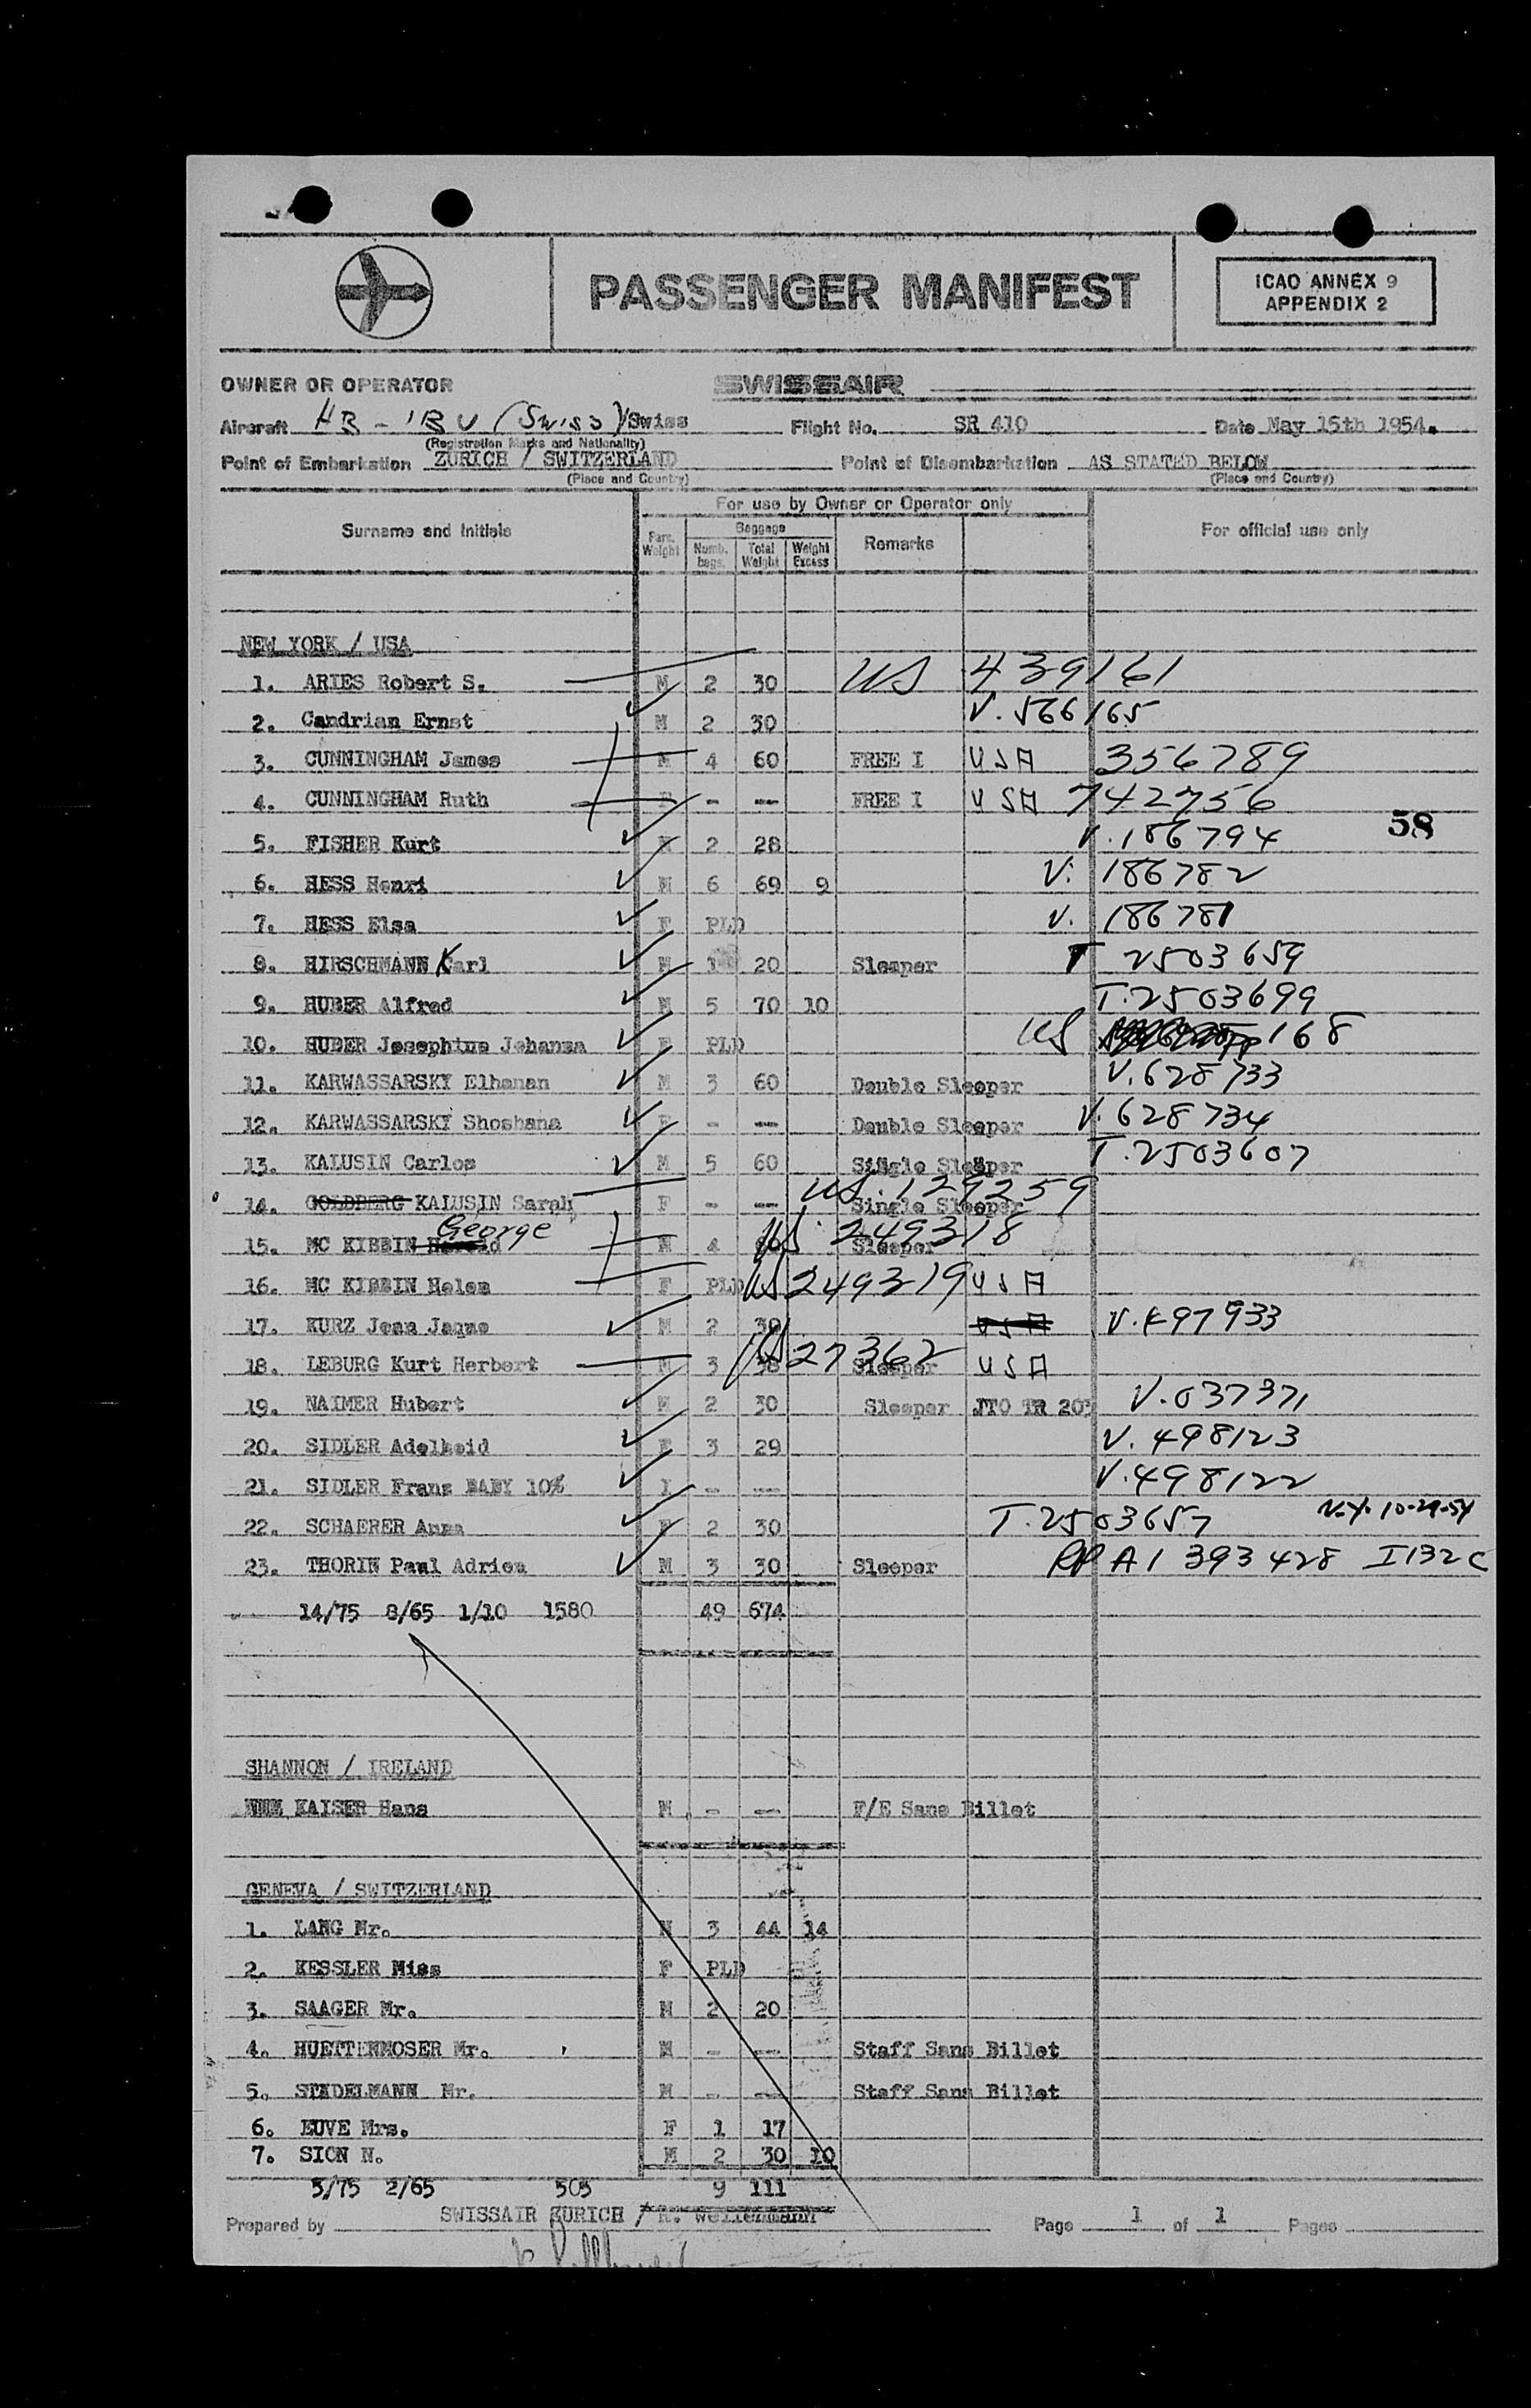 PASSENGER MANIFEST
ICAO ANNEX 9
APPENDIX 2
OWNER OR OPERATOR SWISSAIR
Aircraft HB - IBU (Swiss)/Swiss Flight No. SR 410 Date May 15th 1954.
(Registration Marks and Nationality)
Point of Embarkation ZURICH / SWITZERLAND Point of Disembarkation AS STATED BELOW
(Place and Country) (Place and Country)
For use by Owner or Operator only
Surname and Initials Pass. Weight Baggage Numb. bags. Total Weight Weight Excess Remarks For official use only
NEW YORK / USA
1. ARIES Robert S. M 2 30 US 439161
2. Candrian Ernst M 2 30 V. 566165
3. CUNNINGHAM James M 4 60 FREE I USA 356789
4. CUNNINGHAM Ruth F - -- FREE I USA 742756
58
5. FISHER Kurt M 2 28 V. 186794
6. HESS Henri M 6 69 9 V. 186782
7. HESS Elsa F PLD V. 186781
8. HIRSCHMANN Karl M 1 20 Sleeper T 2503659
9. HUBER Alfred M 5 70 10 T. 2503699
10. HUBER Josephine Johanna F PLD US 168
11. KARWASSARSKY Elhanan M 3 60 Double Sleeper V. 628733
12. KARWASSARSKY Shoshana F - -- Double Sleeper V. 628734
13. KALUSIN Carlos M 5 60 Single Sleeper T. 2503607
14. GOLDBERG KALUSIN Sarah F - -- Single Sleeper US. 129259
15. MC KIBBIN George M 4 60 Sleeper US. 249318
16. MC KIBBIN Helen F PLD US 249319 USA
17. KURZ Jean Jaque M 2 30 USA V. 497933
18. LEBURG Kurt Herbert M 3 38 Sleeper US 27362 USA
19. NAIMER Hubert M 2 30 Sleeper JTO TR 203 V. 037371
20. SIDLER Adelheid F 3 29 V. 498123
21. SIDLER Franz BABY 10% I - -- V. 498122
22. SCHAERER Anna F 2 30 T. 2503657 N.Y. 10-29-54
23. THORIN Paul Adrien M 3 30 Sleeper RP A1 393 428 I132C
14/75 8/65 1/10 1580 49 674
SHANNON / IRELAND
KAISER Hans M - -- F/E Sans Billet
GENEVA / SWITZERLAND
1. LANG Mr. M 3 44 14
2. KESSLER Miss F PLD
3. SAAGER Mr. M 2 20
4. HUETTENMOSER Mr. M - -- Staff Sans Billet
5. STADELMANN Mr. M - -- Staff Sans Billet
6. EUVE Mrs. F 1 17
7. SION N. M 2 30 10
5/75 2/65 505 9 111
Prepared by SWISSAIR ZURICH / Page 1 of 1 Pages